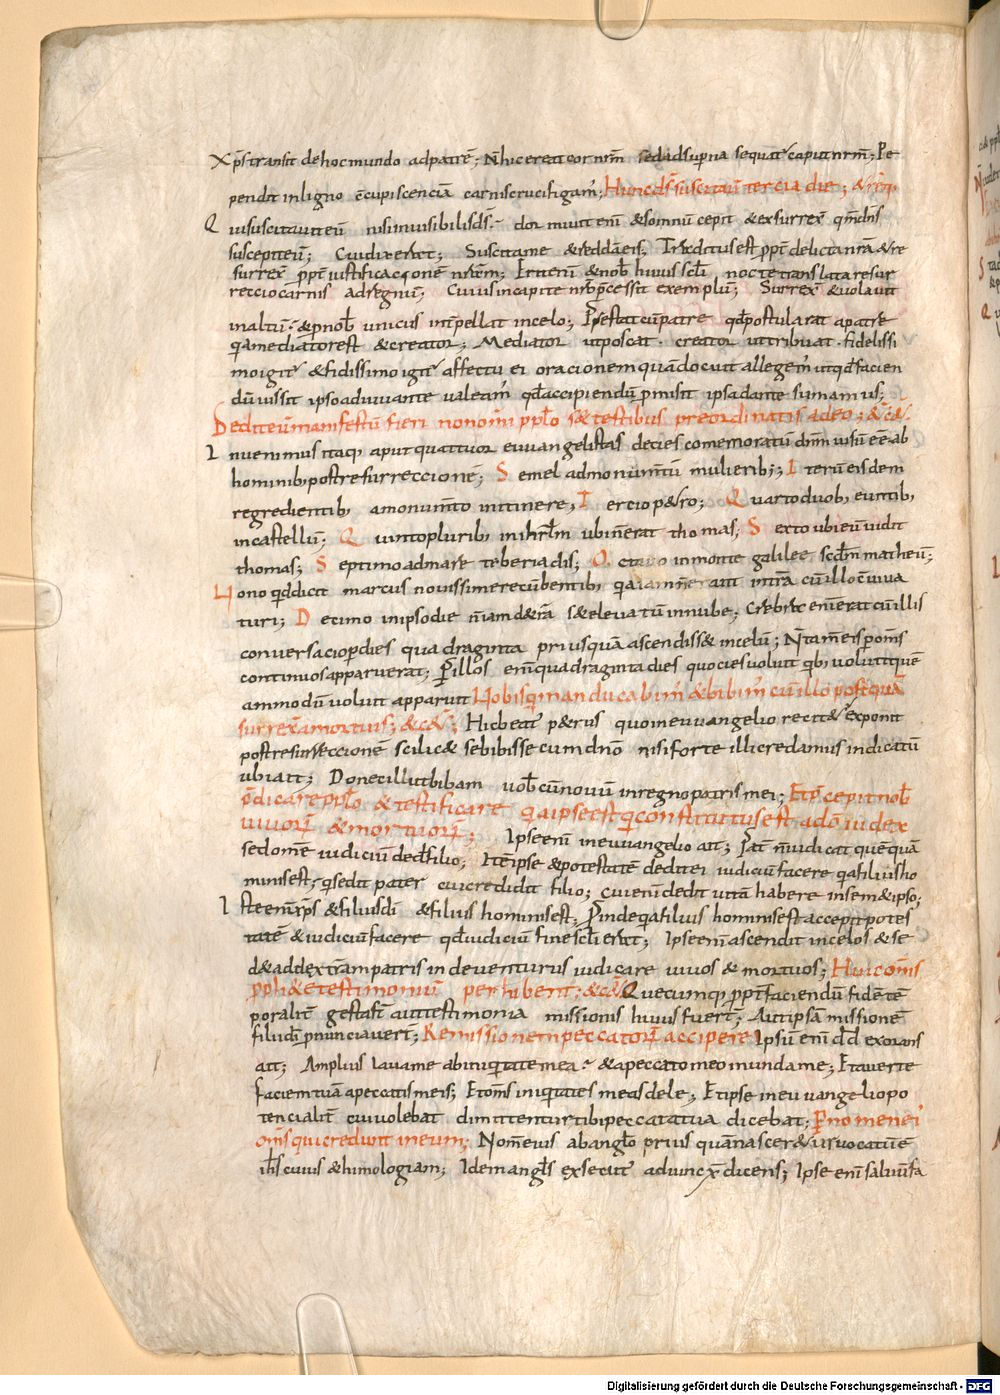 Xp̄s transit de hoc mundo ad patrē; N̄ hic ereat cor nr̄m sed ad supna sequat̄ caput nr̄m; Pe
pendit in ligno c̄cupiscenciā carnis crucifigam̄; Hunc ds̄ suscitauit tercia die; & rlq̄
Quis suscitauit eū nisi inuisibilis ds̄. dormiuit enī & somnū cepit & exsurrex̄ qm̄ dn̄s
suscepit eū; Cui dixerat; Suscita me & reddā eis; Traditus est ꝓpt̄ delicta nr̄a & re
surrex̄ ꝓpt̄ iustificacionē nr̄am; Erit enī & nob̄ huius scl̄i nocte translata resur
reccio carnis ad regnū; Cuius in capite nob̄ p̄cessit exemplū; Surrex̄ & uolauit
in altū. & ꝓ nob̄ unicus int̄pellat in celo; Prestat cū patre qd̄ postularat a patre
q̄a mediator est & creator; Mediator ut poscat. creator ut tribuat. fidelissi
mo igit̄ & fidissimo igit̄ affectu ei oracionem quando cūit allegem̄ ut qd̄ facien
dū iussit ipso adiuuante ualeam̄ qd̄ accipiendū ꝓmisit ipsa dante sumamus;
Dedit eū manifestū fieri non om̄i pplo sᵉ testibus preordinatis a deo; & cᵉt.
Inuenimus itaq; aput quattuor euuangelistas decies comemoratū dn̄m uisū eē ab
hominib; post resurreccionē; Semel ad monumtū mulierib;; Iterū eisdem
regredientib; a monumto in itinere, Tercio p&ro; Quarto duob; euntib;
in castellū; Quinto plurib; in ihrl̄m ubi n̄ erat thomas; Sexto ubi eū uidit
thomas; Septimo ad mare teberiadis; Octauo in monte galilee scd̄m matheū;
Nono qd̄ dicit marcus nouissime recūbentib; q̄a iam n̄ erant in tr̄a cū illo cuiua
turi; Decimo in ipso die n̄ iam d& r̄a sᵉ eleuatū in nube; Crebrᵒ enī erat cū illis
conuersacio ꝑ dies quadraginta priusquā ascendiss& in celū; N̄ tam̄ eis ꝑ om̄s
continuos apparuerat; Ꝑ illos enī quadraginta dies quocies uoluit q̄b; uoluit quē
ammodū uoluit apparuit Nobis q̄ manducabim̄ & bibim̄ cū illo postquā
surrex̄ a mortuis; & cᵉt; Hic beat̄ p&rus quo in euuangelio recit& exponit
post resurreccionē scilic& se bibisse cum dn̄o nisi forte illi credamus indicatū
ubi ait; Donec illut bibam uob̄cū nouū in regno patris mei; Et p̄cepit nob̄
p̄dicare pplo & testificare q̄a ipse est q̄ constitutus est a dō iudex
uiuorū & mortuorū; Ipse enī in euuangelio ait; Pat̄ n̄ iudicat quēquā
sed om̄e iudiciū dedit filio; Itē ipse & potestatē dedit ei iudiciū facere q̄a filius ho
minis est; q̄ sed it pater cui credidit filio; cui enī dedit uitā habere in sem&ipso;
Iste enī xp̄s & filius dī & filius hominis est; Ꝑinde q̄a filius hominis est accepit potes
tatē & iudiciū facere qd̄ iudiciū fine scl̄i erit; Ipse enī ascendit in celos & se
d& ad dextram patris inde uenturus iudicare uiuos & mortuos; Huic om̄s
ꝓphete testimoniū perhibent; & cᵉt. Quecumq; ꝓpt̄ faciendū fidē tē
poralit̄ gesta st̄ aut testimonia missionis huius fuert̄; Aut ipsā missionē
filii dī pnunciauert̄; Remissionem peccatorū accipere Ipsū enī dd̄ exorans
ait; Amplius laua me ab iniquitate mea. & a peccato meo munda me; Et auerte
faciem tuā a peccatis meis; Et om̄s iniquitates meas dele; Et ipse in euuangelio po
tencialit̄ cui uolebat dimittentur tibi peccata tua dicebat; Ꝑ nomen ei
om̄s qui credunt in eum; Nom̄ eius ab anglo priusquā nascer& ur uocatū ē
ih̄s cuius & himologiam; Idem angls exsecut̄ adiunx̄ dicens; Ipse enī saluū fa
Digitalisierung gefördert durch die Deutsche Forschungsgemeinschaft - DFG